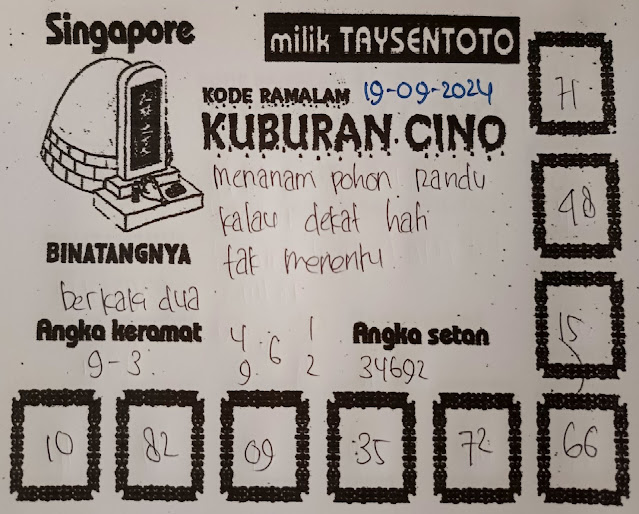 Singapore
milik TAYSENTOTO
KODE RAMALAM 19-09-2024
KUBURAN CINO
menanam pohon randu
kalau dekat hati
tak menentu
BINATANGNYA
berkaki dua
Angka keramat
9-3
4 6 1
9 2
Angka setan
34692
71
48
15
10 82 09 35 72 66